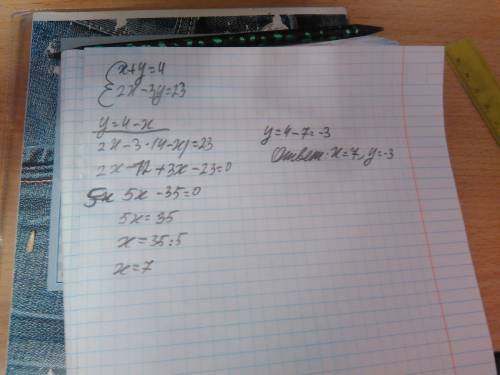 {x+y=4
2x-3y=23
y=4-x
2x-3·(4-x)=23
2x-12+3x-23=0
5x 5x-35=0
5x=35
x=35:5
x=7
y=4-7=-3
Ответ: x=7, y=-3